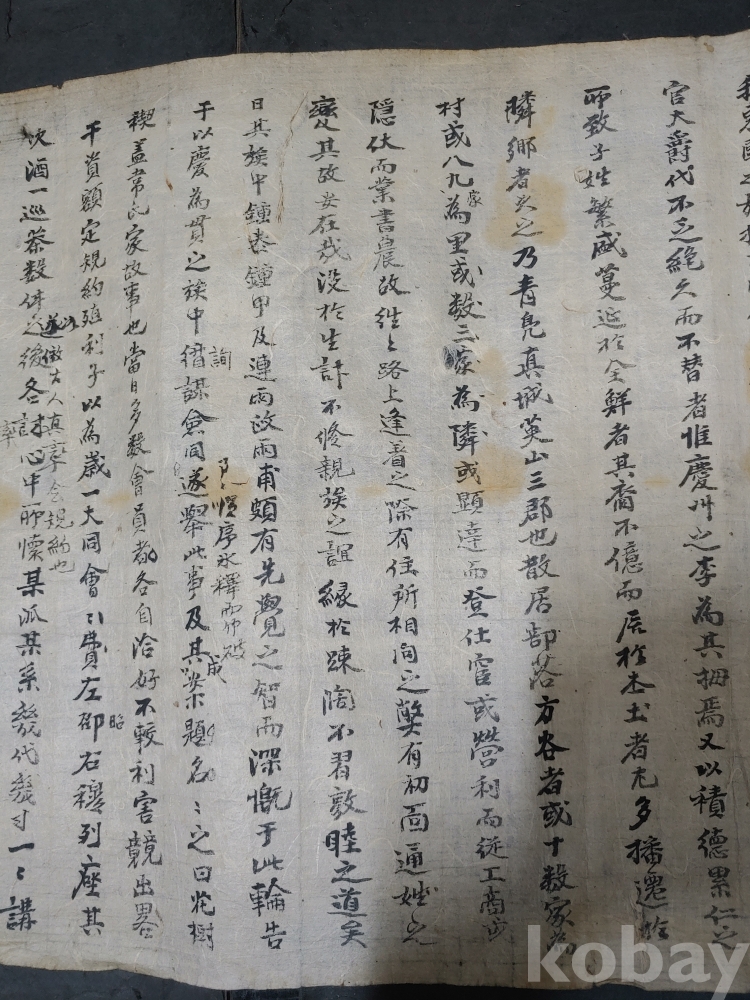 官大爵代不乏絶久而不替者惟慶州之李為其拇焉又以積德累仁之
所致子姓繁盛蔓延於全鮮者其裔不億而居於本土者尤多播遷於
隣鄉者次之乃青鳧真城英山三郡也散居部落方各者或十數家為
村或八九家為里或數三家為隣或顯達而登仕宦或營利而從工商或
隱伏而業書農故往〻路上逢着之際有住所相詢之槩有初面通姓名
変其故安在哉没於生計不修親族之誼緣於疎濶不習敦睦之道矣
日其族中鍾泰鍾甲及連雨汶雨甫頗有先覺之智而深慨于此輪告
于以慶為貫之族中僭謀詢僉同遂舉此事及其案成題名〻之曰花樹
稧盖韋氏家故事也當日多数會員都各自洽好不較利害競出畧
干資額定規約殖利子以為歲一大同會〻費左昭右穆列座其
次酒一巡茶数倂之後各講心中所懷某派某系幾代幾寸一〻講
遂以倣古人真率會規約也
氷釋而
kobay